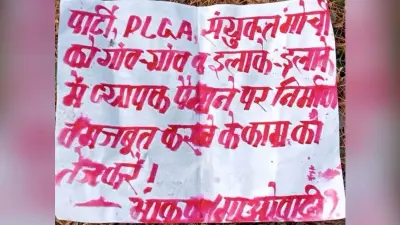 पार्टी, PLGA, संयुक्त मोर्चा
को गांव-गांव व इलाके-इलाके
में व्यापक पैमाने पर निर्माण
व मजबूत करने के काम को
तेज करें!
भाकपा (माओवादी)